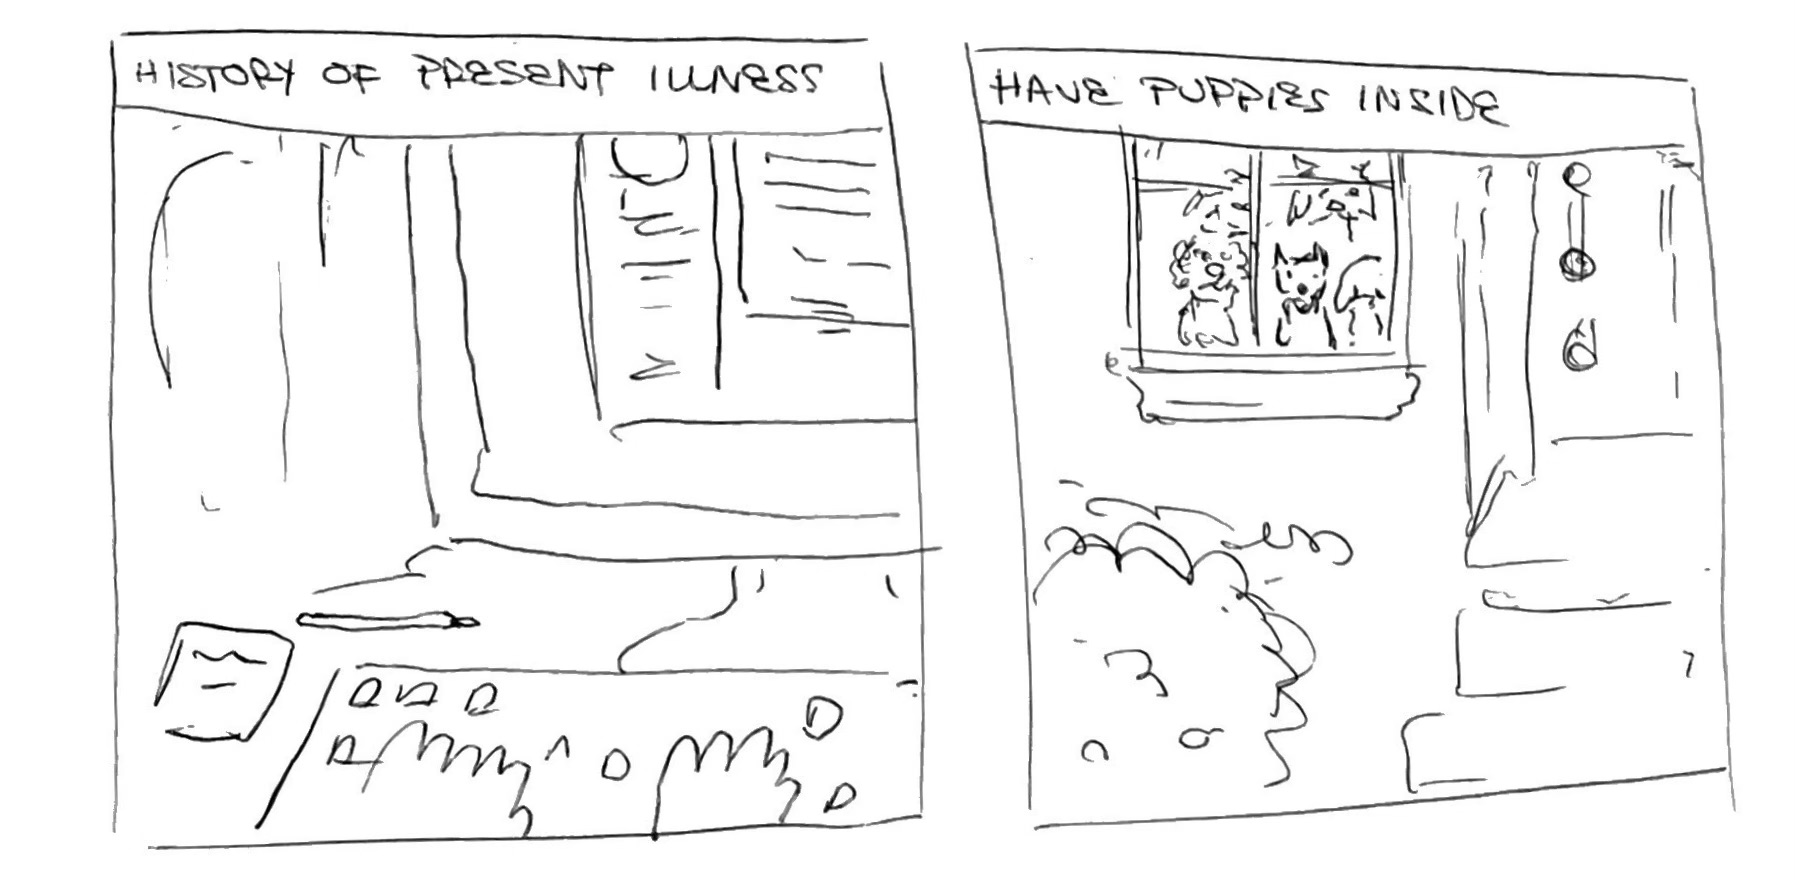 HISTORY OF PRESENT ILLNESS
HAVE PUPPIES INSIDE